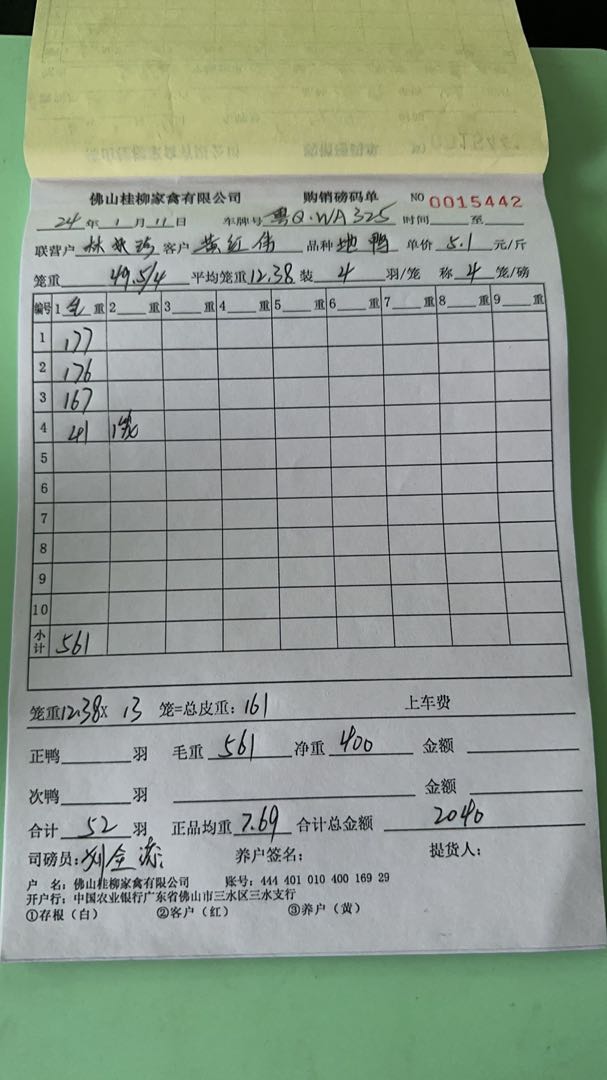 佛山桂柳家禽有限公司 购销磅码单 NO 0015442
24 年 1 月 11 日 车牌号 粤Q·WA325 时间 至
联营户 林 客户 黄红伟 品种 地鸭 单价 5.1 元/斤
笼重 49.5/4 平均笼重 12.38 装 4 羽/笼 称 4 笼/磅
编号 1 毛 重 2 重 3 重 4 重 5 重 6 重 7 重 8 重 9 重
1 177
2 176
3 167
4 41 1笼
5
6
7
8
9
10
小计 561
笼重 12.38 X 13 笼=总皮重: 161 上车费
正鸭 羽 毛重 561 净重 400 金额
次鸭 羽 金额
合计 52 羽 正品均重 7.69 合计总金额 2040
司磅员: 刘全 养户签名: 提货人:
户 名: 佛山桂柳家禽有限公司 账号: 444 401 010 400 169 29
开户行: 中国农业银行广东省佛山市三水区三水支行
①存根（白） ②客户（红） ③养户（黄）